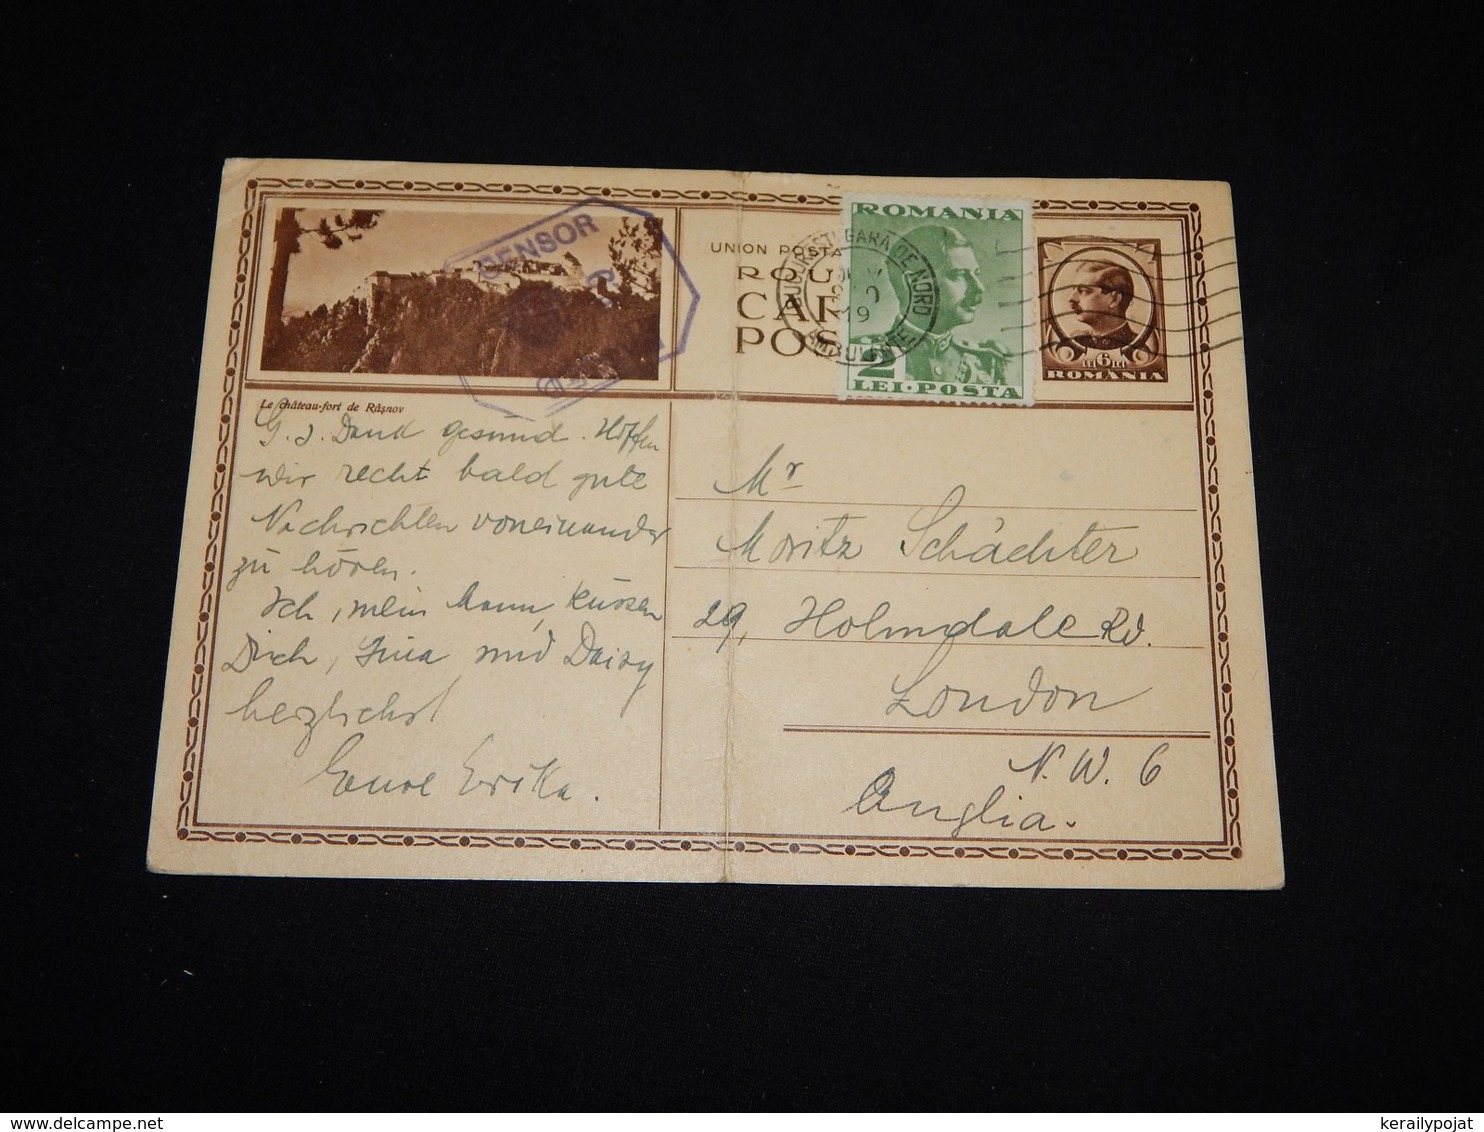 CENSOR
UNION POSTA
ROU
CAR
POS
BUCUREȘTI GARA DE NORD
19
AMBULANTE
ROMANIA
2
LEI·POSTA
6
LEI LEI
ROMANIA
Le château-fort de Râșnov
G. s. Dank gesund. Hoffen
wir recht bald gute
Nachrichten voneinander
zu hören.
Ich, mein Mann, küssen
Dich, und Daisy
herzlichst
Eure Erika.
Mr
Moritz Schächter
29, Holmdale Rd.
London
N.W. 6
Anglia.
kerailypojat